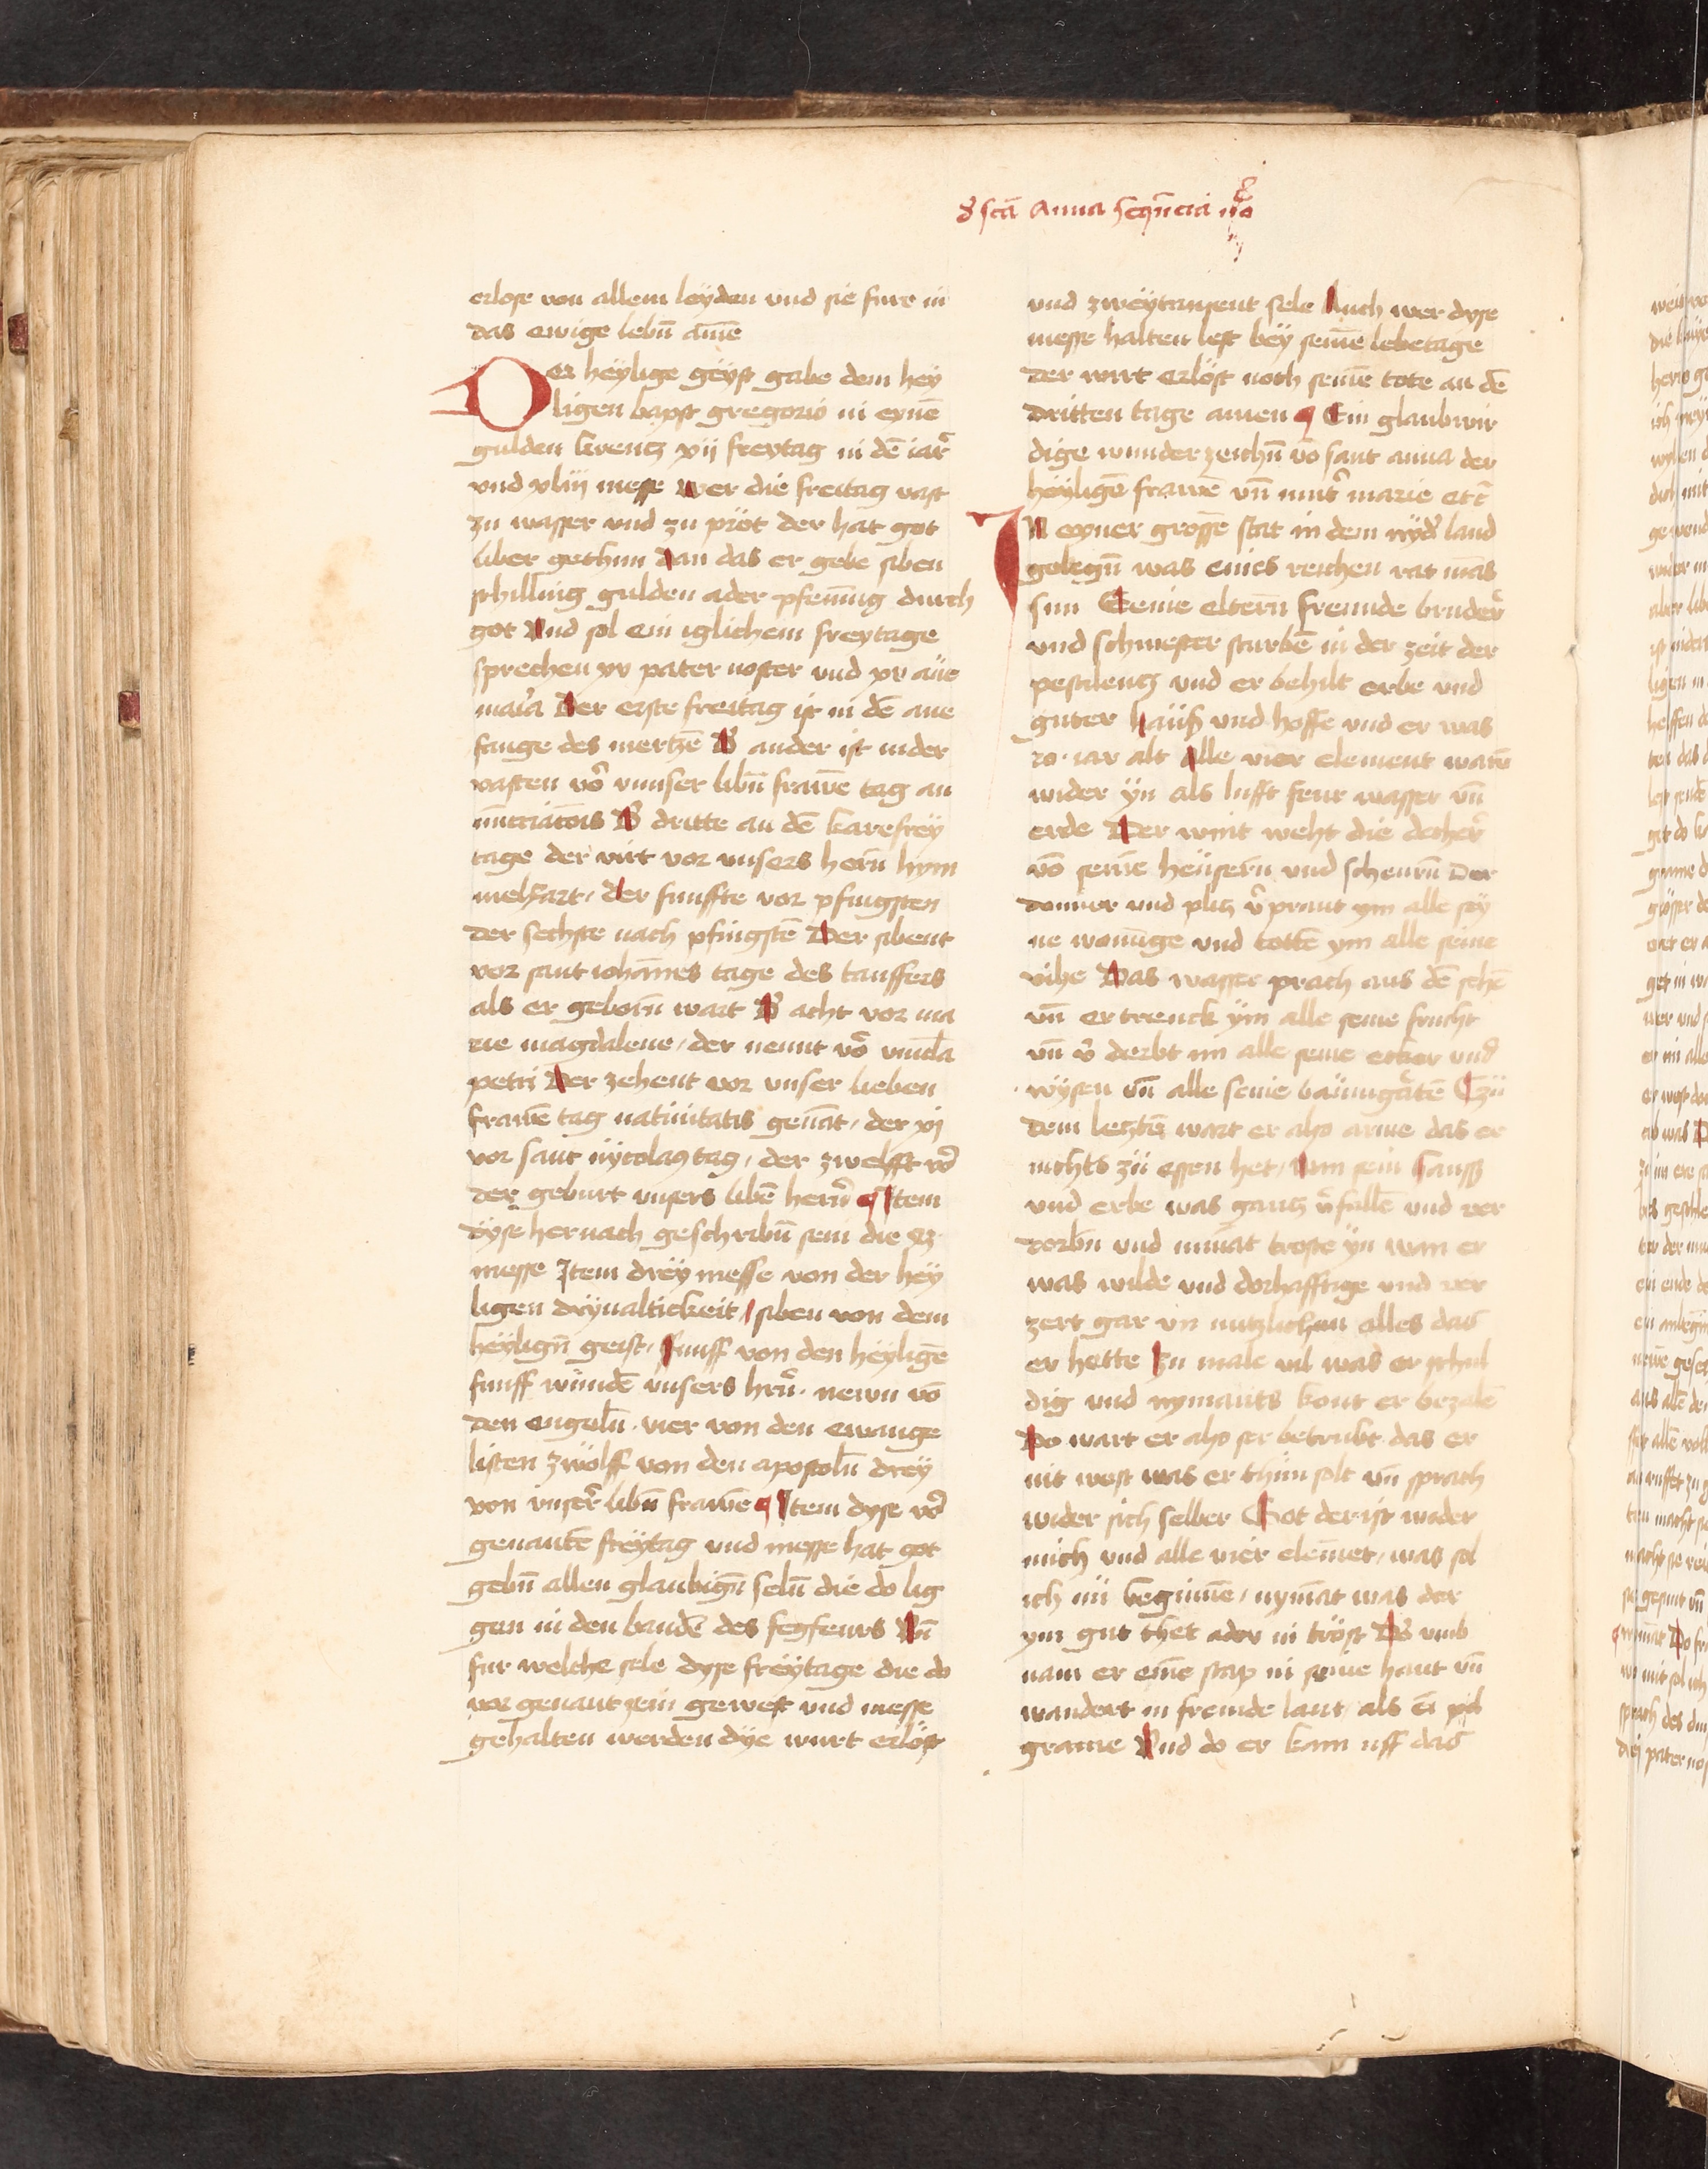 scā Anna sequēcia
erlose von allem leyden und sie fure in
das ewige lebn̄ amē
Der heylige geyst gabe dem hey
ligen bapst gregorio in eynē
gulden kreutz xij freytag in dē iar
und xliij messe wer die freitag vast
zu wasser und zu pröt der hat got
liber gethun dan das er gebe siben
schilling gulden ader pfennīg durch
got Und sol ein iglichem freytage
sprechen xv pater noster und xv aūe
maria Der erste freitag ist in dē ane
fange des mertzē D ander ist inder
vasten vō unser libn̄ frawē tag an
nūctiatōis D dritte an dē karefrey
tage der virt vor unsers hern̄ hym
melfart, der funffte vor pfingsten
der sechste nach pfingstē Der sibent
vor sant iohānes tage des tauffers
als er geborn̄ wart D acht vor ma
rie magdalene, der neunt vō vincla
petri Der zehent vor unser lieben
frawē tag natiuitatis genāt, der xj
vor sant nycolaus tag, der zwelfft vō
der geburt unsers libē hern̄ ¶ Item
dyse hernach geschribn̄ sein die
messe Item drey messe von der hey
ligen dryualtickeit, siben von dem
heylign̄ geist, funff von den heyligē
funff wundē unsers hrn̄. newn vō
den engeln̄. vier von den ewange
listen zwölff von den aposteln̄ drey
von unser libn̄ frawē ¶ Item dyse vor
genantē freytag und messe hat got
gebn̄ allen glaubign̄ seln̄ die do lig
gen in den bandē des fegfeurs Vn̄
fur welche sele dyse freytage die do
vor genant sein gewest und messe
gehalten werden dye wurt erlöst
und zweytausent sele Auch wer dyse
messe halten lest bey seinē lebetage
der wirt erlöst noch seinē tote an dē
dritten tage amen ¶ Ein glaubwir
dige wunderzeichn̄ vō sant anna der
heyligē frawē vn̄ mutr̄ marie etc̄
In eyner grossē stat in dem nyd' land
gelegn̄ was eines reichen rat mās
sun Seine eltern̄ freunde bruder
und schwester sturbē in der zeit der
pestilentz und er behilt erbe und
guter hauss und hoffe und er was
20. iar alt Alle vier element warn̄
wider yn als lufft feur wasser vn̄
erde Der wint weht die decher
vō seinē heusern̄ und scheurn̄ Der
donner und plitz v̄prant ym alle sey
ne wonūge und tottē ym alle seine
vihe Das wasser prach aus dē sehē
vn̄ ertrenck ym alle seine frucht
vn̄ v̄derbt im alle seine ecker und
wysen vn̄ alle seine baumgartē Czu
dem letztē wart er also arme das er
nichts zu essen het, Nun sein hauss
und erbe was gantz v̄fallē und ver
dorbn̄ und nimāt troste yn wan er
was wilde und dorhafftige und ver
zert gar un nutzlichen alles das
er hette Zu male vil was er schul
dig und nymants kont er bezalē
Do wart er also ser betrubt das er
nit west was er thun solt vn̄ sprach
wider sich selber Got der ist wider
mich und alle vier elemēt, was sol
ich nu begīnē, nymāt was der
ym gut thet ader in tröst Dō umb
nam er eine stap in seine hant vn̄
wandert in fremde lant als ei pil
grame Und do er kam uff das